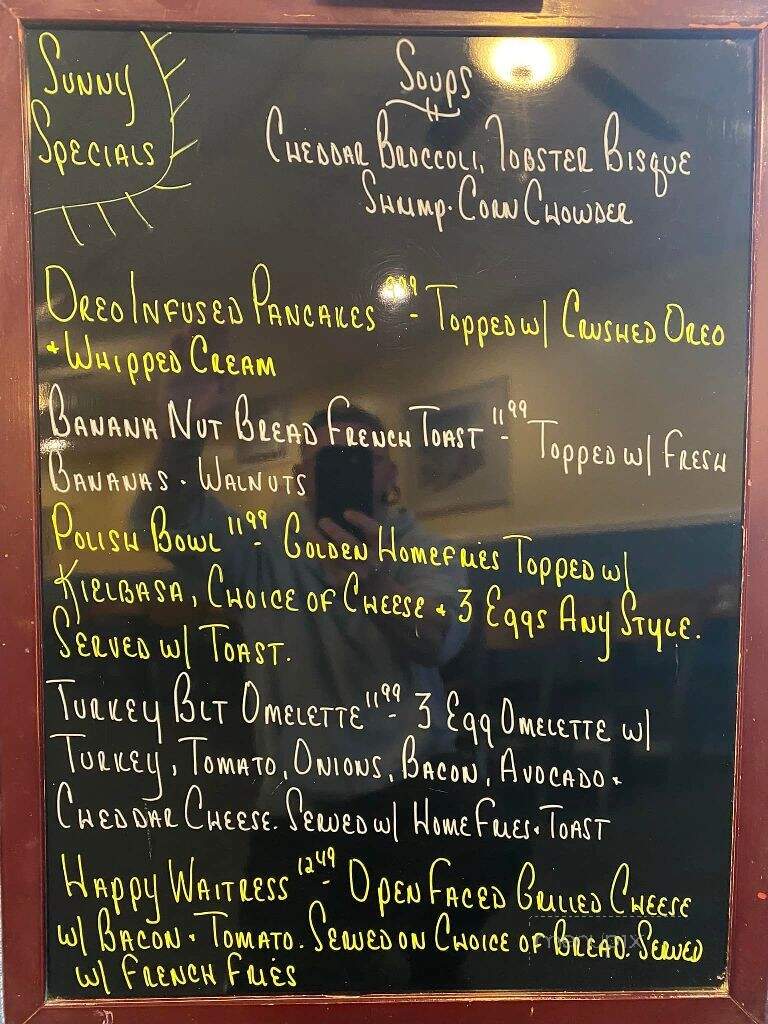 Sunny
Specials
Soups
Cheddar Broccoli, Lobster Bisque
Shrimp · Corn Chowder
Oreo Infused Pancakes 999 - Topped w/ Crushed Oreo
+ Whipped Cream
Banana Nut Bread French Toast 1199 - Topped w/ Fresh
Bananas · Walnuts
Polish Bowl 1199 - Golden Homefries Topped w/
Kielbasa, Choice of Cheese + 3 Eggs Any Style.
Served w/ Toast.
Turkey BLT Omelette 1199 - 3 Egg Omelette w/
Turkey, Tomato, Onions, Bacon, Avocado +
Cheddar Cheese. Served w/ Home Fries + Toast
Happy Waitress 1249 - Open Faced Grilled Cheese
w/ Bacon + Tomato. Served on Choice of Bread. Served
w/ French Fries